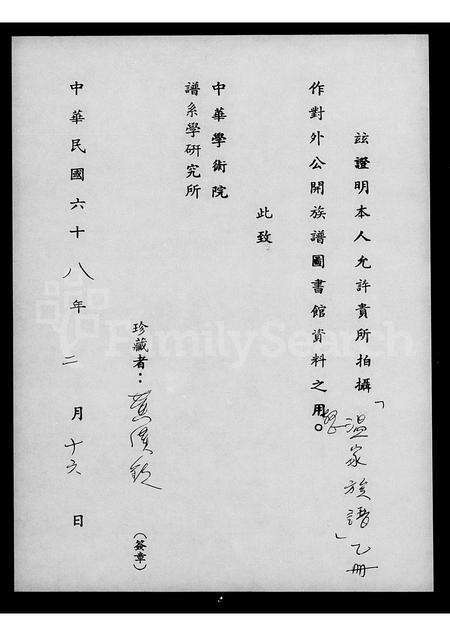 玆證明本人允許貴所拍攝「溫家族譜」乙册
作對外公開族譜圖書館資料之用。
此致
中華學術院
譜系學研究所
珍藏者：黃漢欽（簽章）
中華民國六十八年二月十六日
FamilySearch